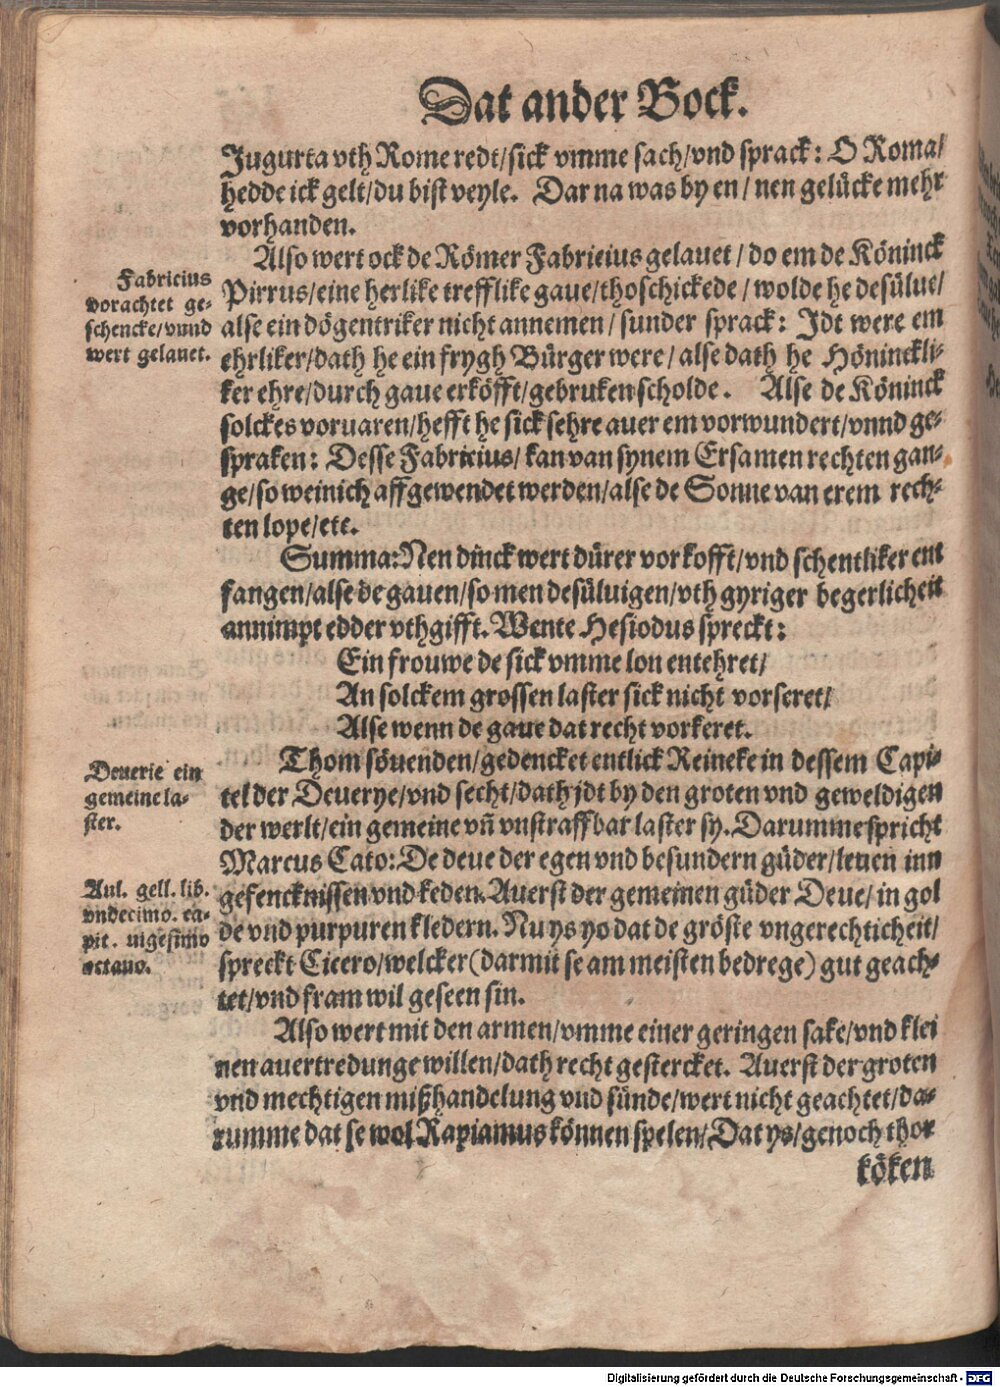 Dat ander Bock.
Jugurta vth Rome redt/sick vmme sach/vnd sprack: O Roma/
hedde ick gelt/du bist veyle. Dar na was by en/nen gelücke mehr
vorhanden.
Also wert ock de Römer Fabricius gelauet/do em de Köninck
Pirrus/eine herlike trefflike gaue/thoschickede/wolde he desülue/
alse ein dögentriker nicht annemen/sunder sprack: Jdt were em
ehrliker/dath he ein frygh Bürger were/alse dath he Höninckli-
ker ehre/durch gaue erköfft/gebruken scholde. Alse de Köninck
solckes voruaren/hefft he sick sehre auer em vorwundert/vnnd ge-
spraken: Desse Fabricius/kan van synem Ersamen rechten gan-
ge/so weinich affgewendet werden/alse de Sonne van erem rech-
ten lope/etc.
Fabricius
vorachtet ge-
schencke/vnnd
wert gelauet.
Summa: Nen dinck wert dürer vorkofft/vnd schentliker ent
fangen/alse de gauen/so men desüluigen/vth gyriger begerlicheit
annimpt edder vthgifft. Wente Hesiodus spreckt:
Ein frouwe de sick vmme lon entehret/
An solckem grossen laster sick nicht vorseret/
Alse wenn de gaue dat recht vorkeret.
Thom söuenden/gedencket entlick Reineke in dessem Capi-
tel der Deuerye/vnd secht/dath jdt by den groten vnd geweldigen
der werlt/ein gemeine vn̄ vnstraffbar laster sy. Darumme spricht
Marcus Cato: De deue der egen vnd besundern güder/leuen inn
gefencknissen vnd keden. Auerst der gemeinen güder Deue/in gol
de vnd purpuren kledern. Nu ys yo dat de gröste vngerechticheit/
spreckt Cicero/welcker (darmit se am meisten bedrege) gut geach-
tet/vnd fram wil geseen sin.
Deuerie ein
gemeine la-
ster.
Aul. gell. lib.
vndecimo. ca-
pit. uigesimo
octauo.
Also wert mit den armen/vmme einer geringen sake/vnd klei
nen auertredunge willen/dath recht gestercket. Auerst der groten
vnd mechtigen mißhandelung vnd sünde/wert nicht geachtet/da-
rumme dat se wol Rapiamus können spelen/Dat ys/genoch thor
köken
Digitalisierung gefördert durch die Deutsche Forschungsgemeinschaft - DFG